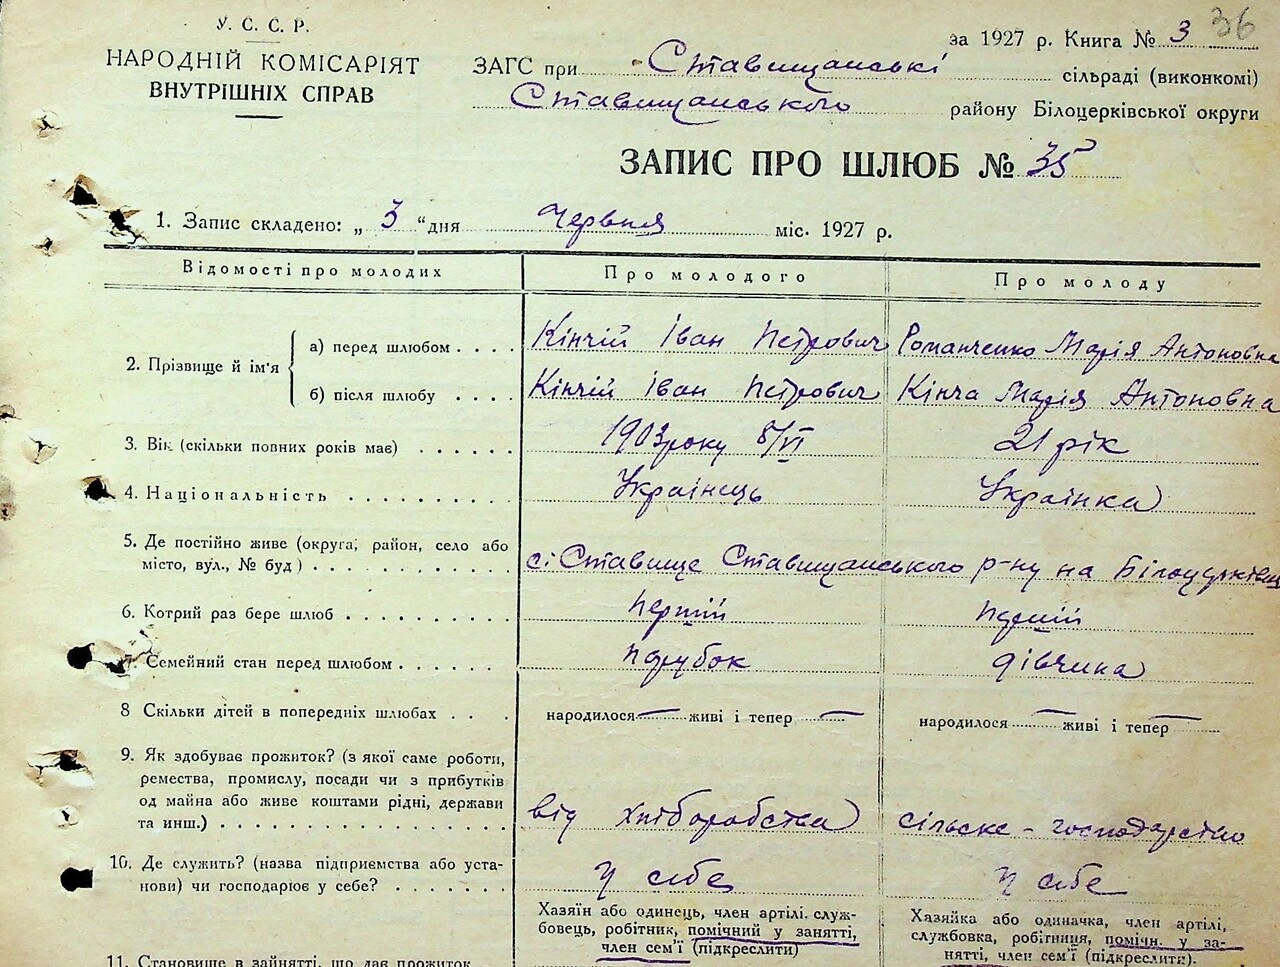 36
У. С. С. Р.
НАРОДНІЙ КОМІСАРІЯТ
ВНУТРІШНІХ СПРАВ
за 1927 р. Книга № 3
ЗАГС при Ставищанські сільраді (виконкомі)
Ставищанського району Білоцерківської округи
ЗАПИС ПРО ШЛЮБ № 35
1. Запис складено: „ 3 “ дня Червня міс. 1927 р.
Відомості про молодих Про молодого Про молоду
2. Прізвище й ім'я
а) перед шлюбом . . . . Кінчій Іван Петрович Романченко Марія Антоновна
б) після шлюбу . . . . Кінчій Іван Петрович Кінча Марія Антоновна
3. Вік (скільки повних років має) . . . . . . 1903 року 8/VI 21 рік
4. Національність . . . . . . . . . . Українець Українка
5. Де постійно живе (округа, район, село або
місто, вул., № буд) . . . . . . . . . . . с. Ставище Ставищанського р-ну на Білоцерківщ
6. Котрий раз бере шлюб . . . . . . . . . . перший перший
7. Семейний стан перед шлюбом . . . . . . парубок дівчина
8 Скільки дітей в попередніх шлюбах . . . народилося — живі і тепер — народилося — живі і тепер —
9. Як здобуває прожиток? (з якої саме роботи,
ремества, промислу, посади чи з прибутків
од майна або живе коштами рідні, держави
та инш.) . . . . . . . . . . . . . . . . . від хліборобства сільске - господарство
10. Де служить? (назва підприємства або уста-
нови) чи господарює у себе? . . . . . . . у себе у себе
Хазяїн або одинець, член артілі. служ-
бовець, робітник, помічний у занятті,
член сем'ї (підкреслити)
Хазяйка або одиначка, член артілі,
службовка, робітниця, помічн. у за-
нятті, член сем'ї (підкреслити).
11. Становище в зайнятті, що дає прожиток